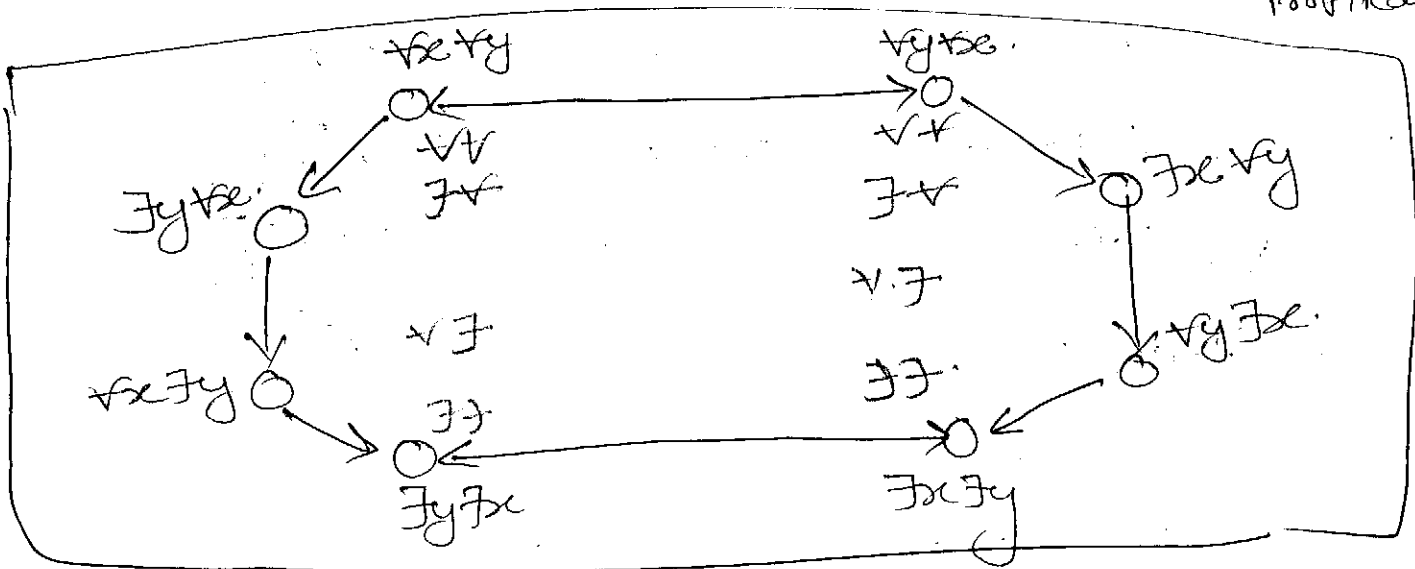 ∀x∀y
∀y∀x.
∀∀
∀∀
∃y∀x.
∃∀
∃∀
∃x∀y
∀.∃
∀∃.
∀y∃x.
∀x∃y
∃∃.
∃∃
∃y∃x
∃x∃y